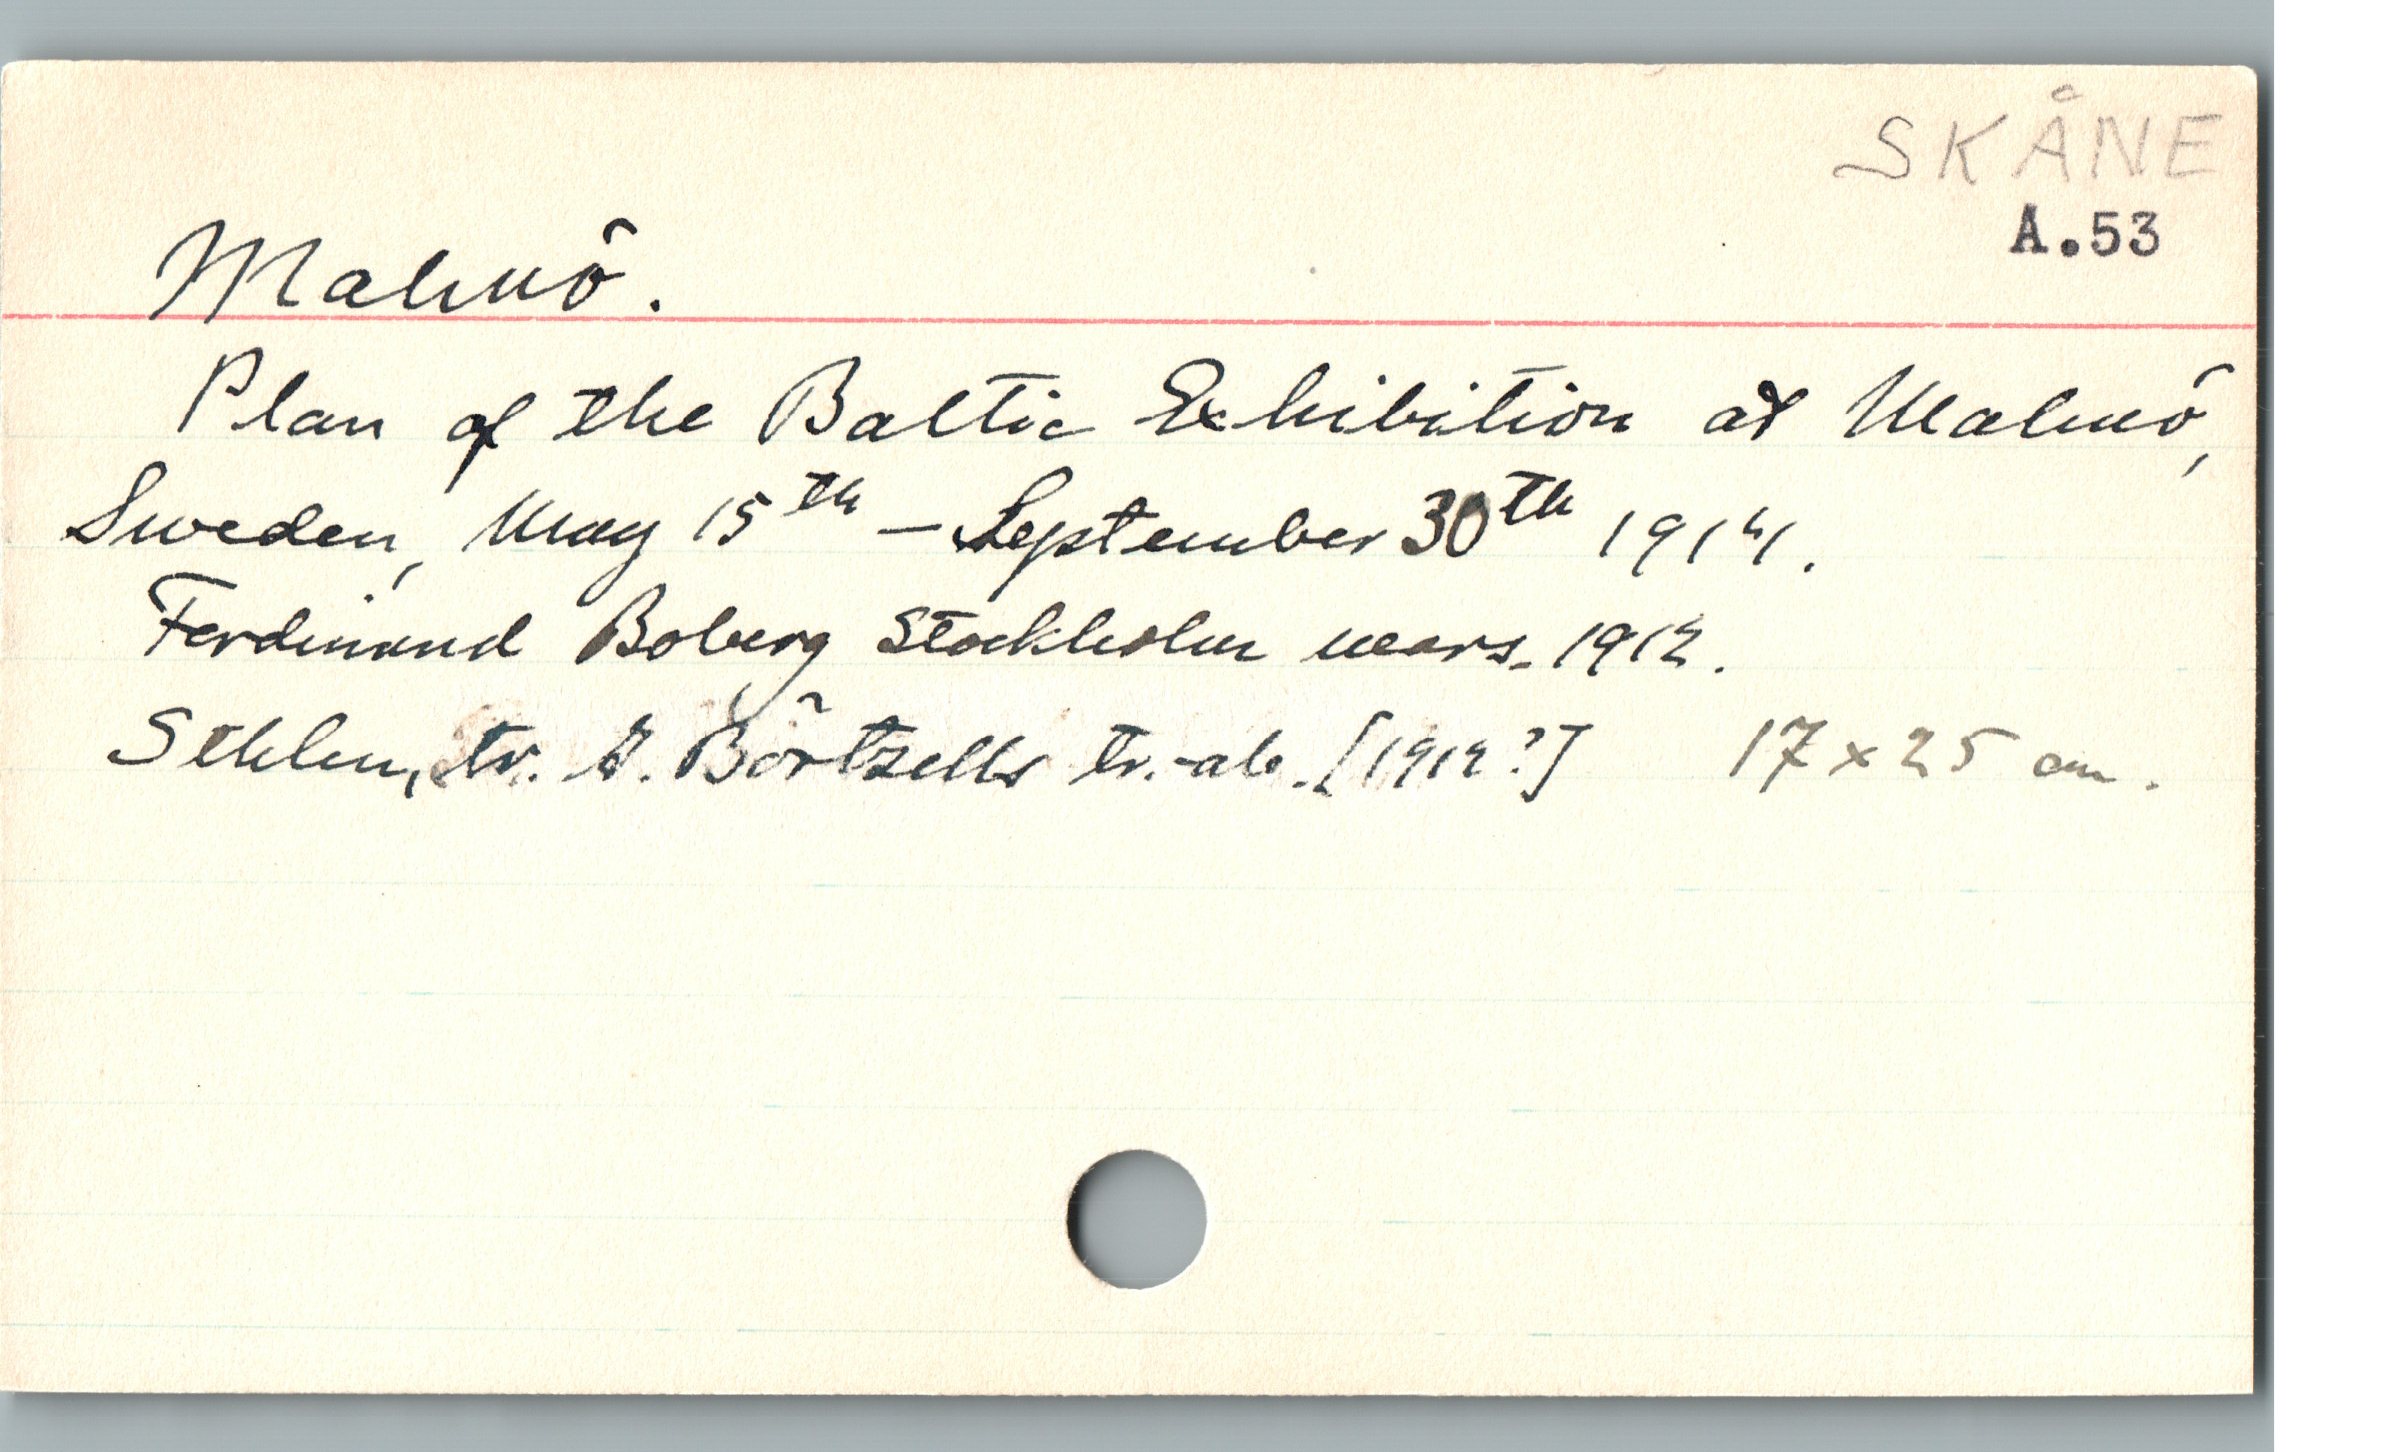 SKÅNE
A.53
Malmö.
Plan of the Baltic Exhibition at Malmö,
Sweden, May 15th – September 30th 1914.
Ferdinand Boberg Stockholm mars. 1912.
Sthlm, tr. A. Börtzells tr.-ab. [1912?] 17 x 25 cm.